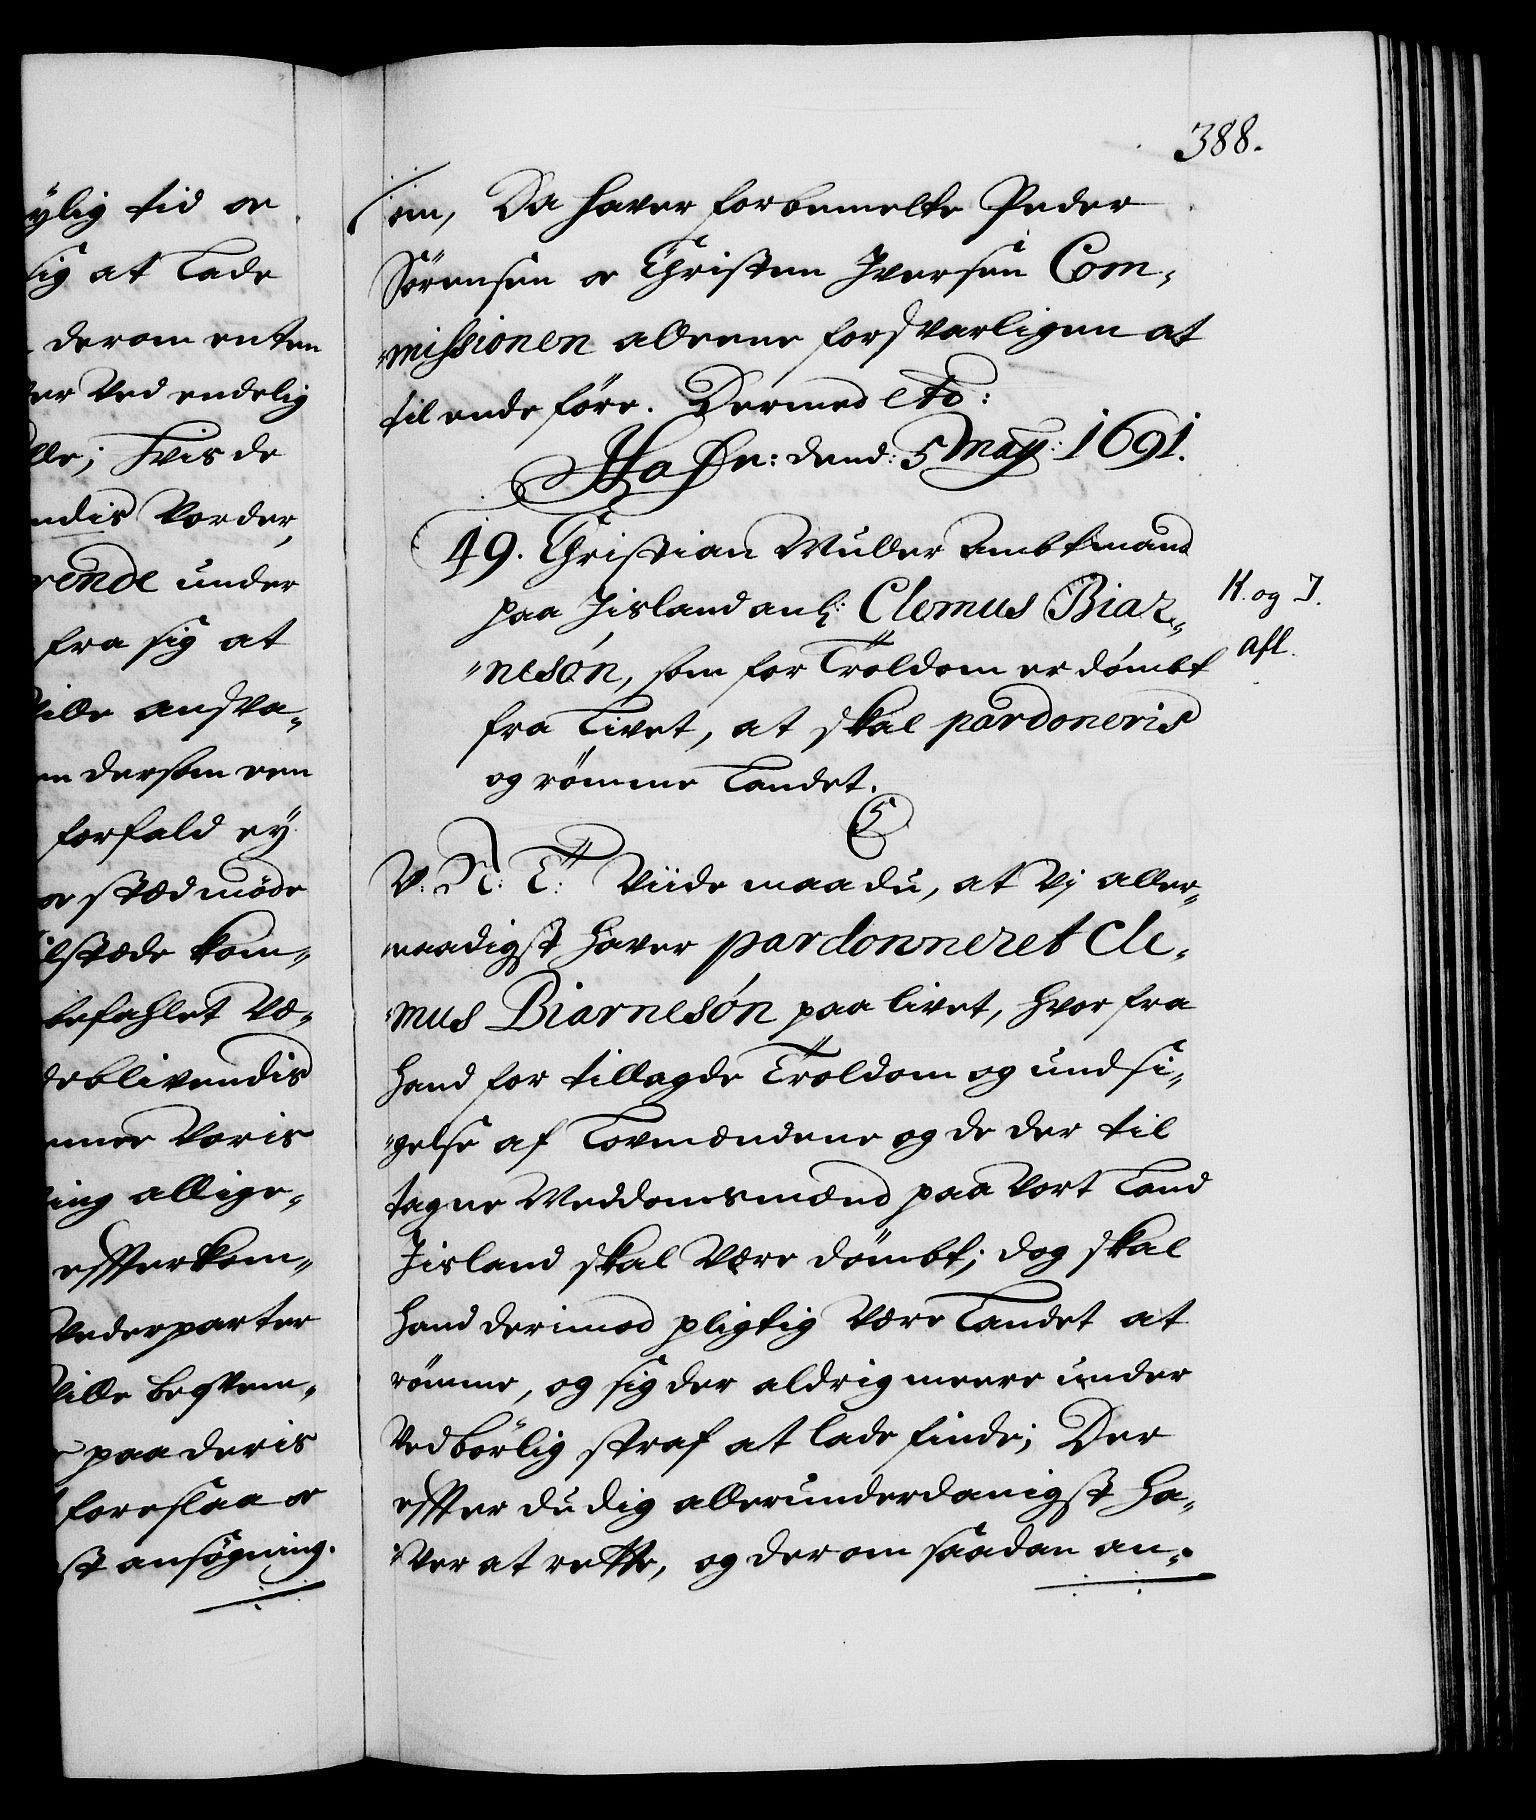 388.
ylig tid oc
sig at Lade
derom enten
Ved endelig
Hvis de
Vorder,
under
fra sig at
ansva„
dersom een
forfald ey
oc stæd møde
kom„
befahlet Væ„
blivendis
Voris
allige„
effterkom„
Vederparter
beqvem„
paa deris
foreslaa oc
ansøgning.
om, Da haver forbemelte Peder
Sörensen oc Christen Iversen Com„
„missionen alleene forsvarligen at
til ende före. Dermed etc:
Hafn: dend: 5 Maÿ: 1691.
49. Christian Muller Ambtmand
paa Iisland anl: Clemus Biar„
„nesón, som for Troldom er dömbt
fra Livet, at skal pardoneris
og römme Landet.
C5
V. N: T: Viide maa du, at Vj aller„
naadigst haver pardonneret Cle„
„mus Biarnesón paa livet, hvor fra
hand for tillagde Troldom og undsi„
„gelse af Lovmændene og de der til
tagne Meddomsmænd paa Vort Land
Iisland skal Være dömbt; dog skal
hand derimod pligtig Være Landet at
römme, og sig der aldrig meere under
Vedbörlig straf at lade finde; Der
effter du dig allerunderdanigst ha„
„ver at rette, og derom saadan an„
K. og I.
Afl.